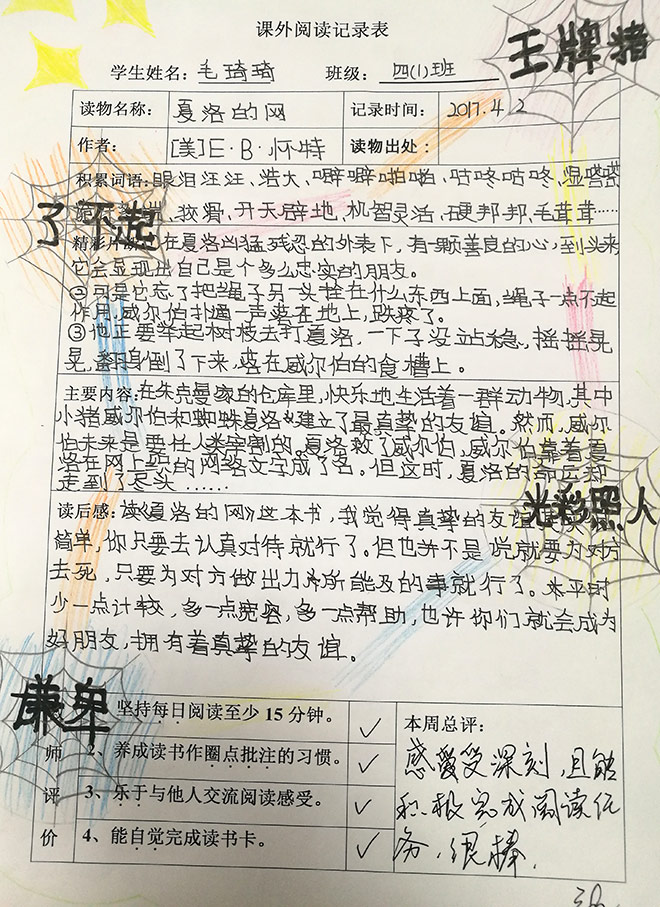 课外阅读记录表
王牌猪
学生姓名：毛琦琦 班级：四(1)班
读物名称： 夏洛的网 记录时间： 2017.4.2
作者： [美]E·B·怀特 读物出处：
积累词语：眼泪汪汪、浩大、噼噼啪啪、咕咚咕咚、湿嗒嗒
狡猾、开天辟地、机智灵活、硬邦邦、毛茸茸……
了不起
精彩片段：在夏洛凶猛残忍的外表下，有一颗善良的心，到头来
它会显现出自己是个多么忠实的朋友。
②可是它忘了把绳子另一头拴在什么东西上面，绳子一点不起
作用，威尔伯扑通一声落在地上，跌疼了。
③他正要举起树枝去打夏洛，一下子没站稳，摇摇晃
晃，翻身倒了下来，落在威尔伯的食槽上。
主要内容：在朱克曼家的仓库里，快乐地生活着一群动物，其中
小猪威尔伯和蜘蛛夏洛建立了最真挚的友谊。然而，威尔
伯未来是要任人宰割的。夏洛救了威尔伯，威尔伯靠着夏
洛在网上的网络文字成了名。但这时，夏洛的命运却
走到了尽头……
光彩照人
读后感：读《夏洛的网》这本书，我觉得真挚的友谊
简单，你只要去认真对待就行了。但也并不是说就要为对方
去死，只要为对方做出力所能及的事就行了。平时
少一点计较，多一点宽容，多一点帮助，也许你们就会成为
好朋友，拥有着真挚的友谊。
谦卑
师评价
坚持每日阅读至少 15 分钟。 ✓
2、养成读书作圈点批注的习惯。 ✓
3、乐于与他人交流阅读感受。 ✓
4、能自觉完成读书卡。 ✓
本周总评：
感受深刻，且能
积极完成阅读任
务，很棒，